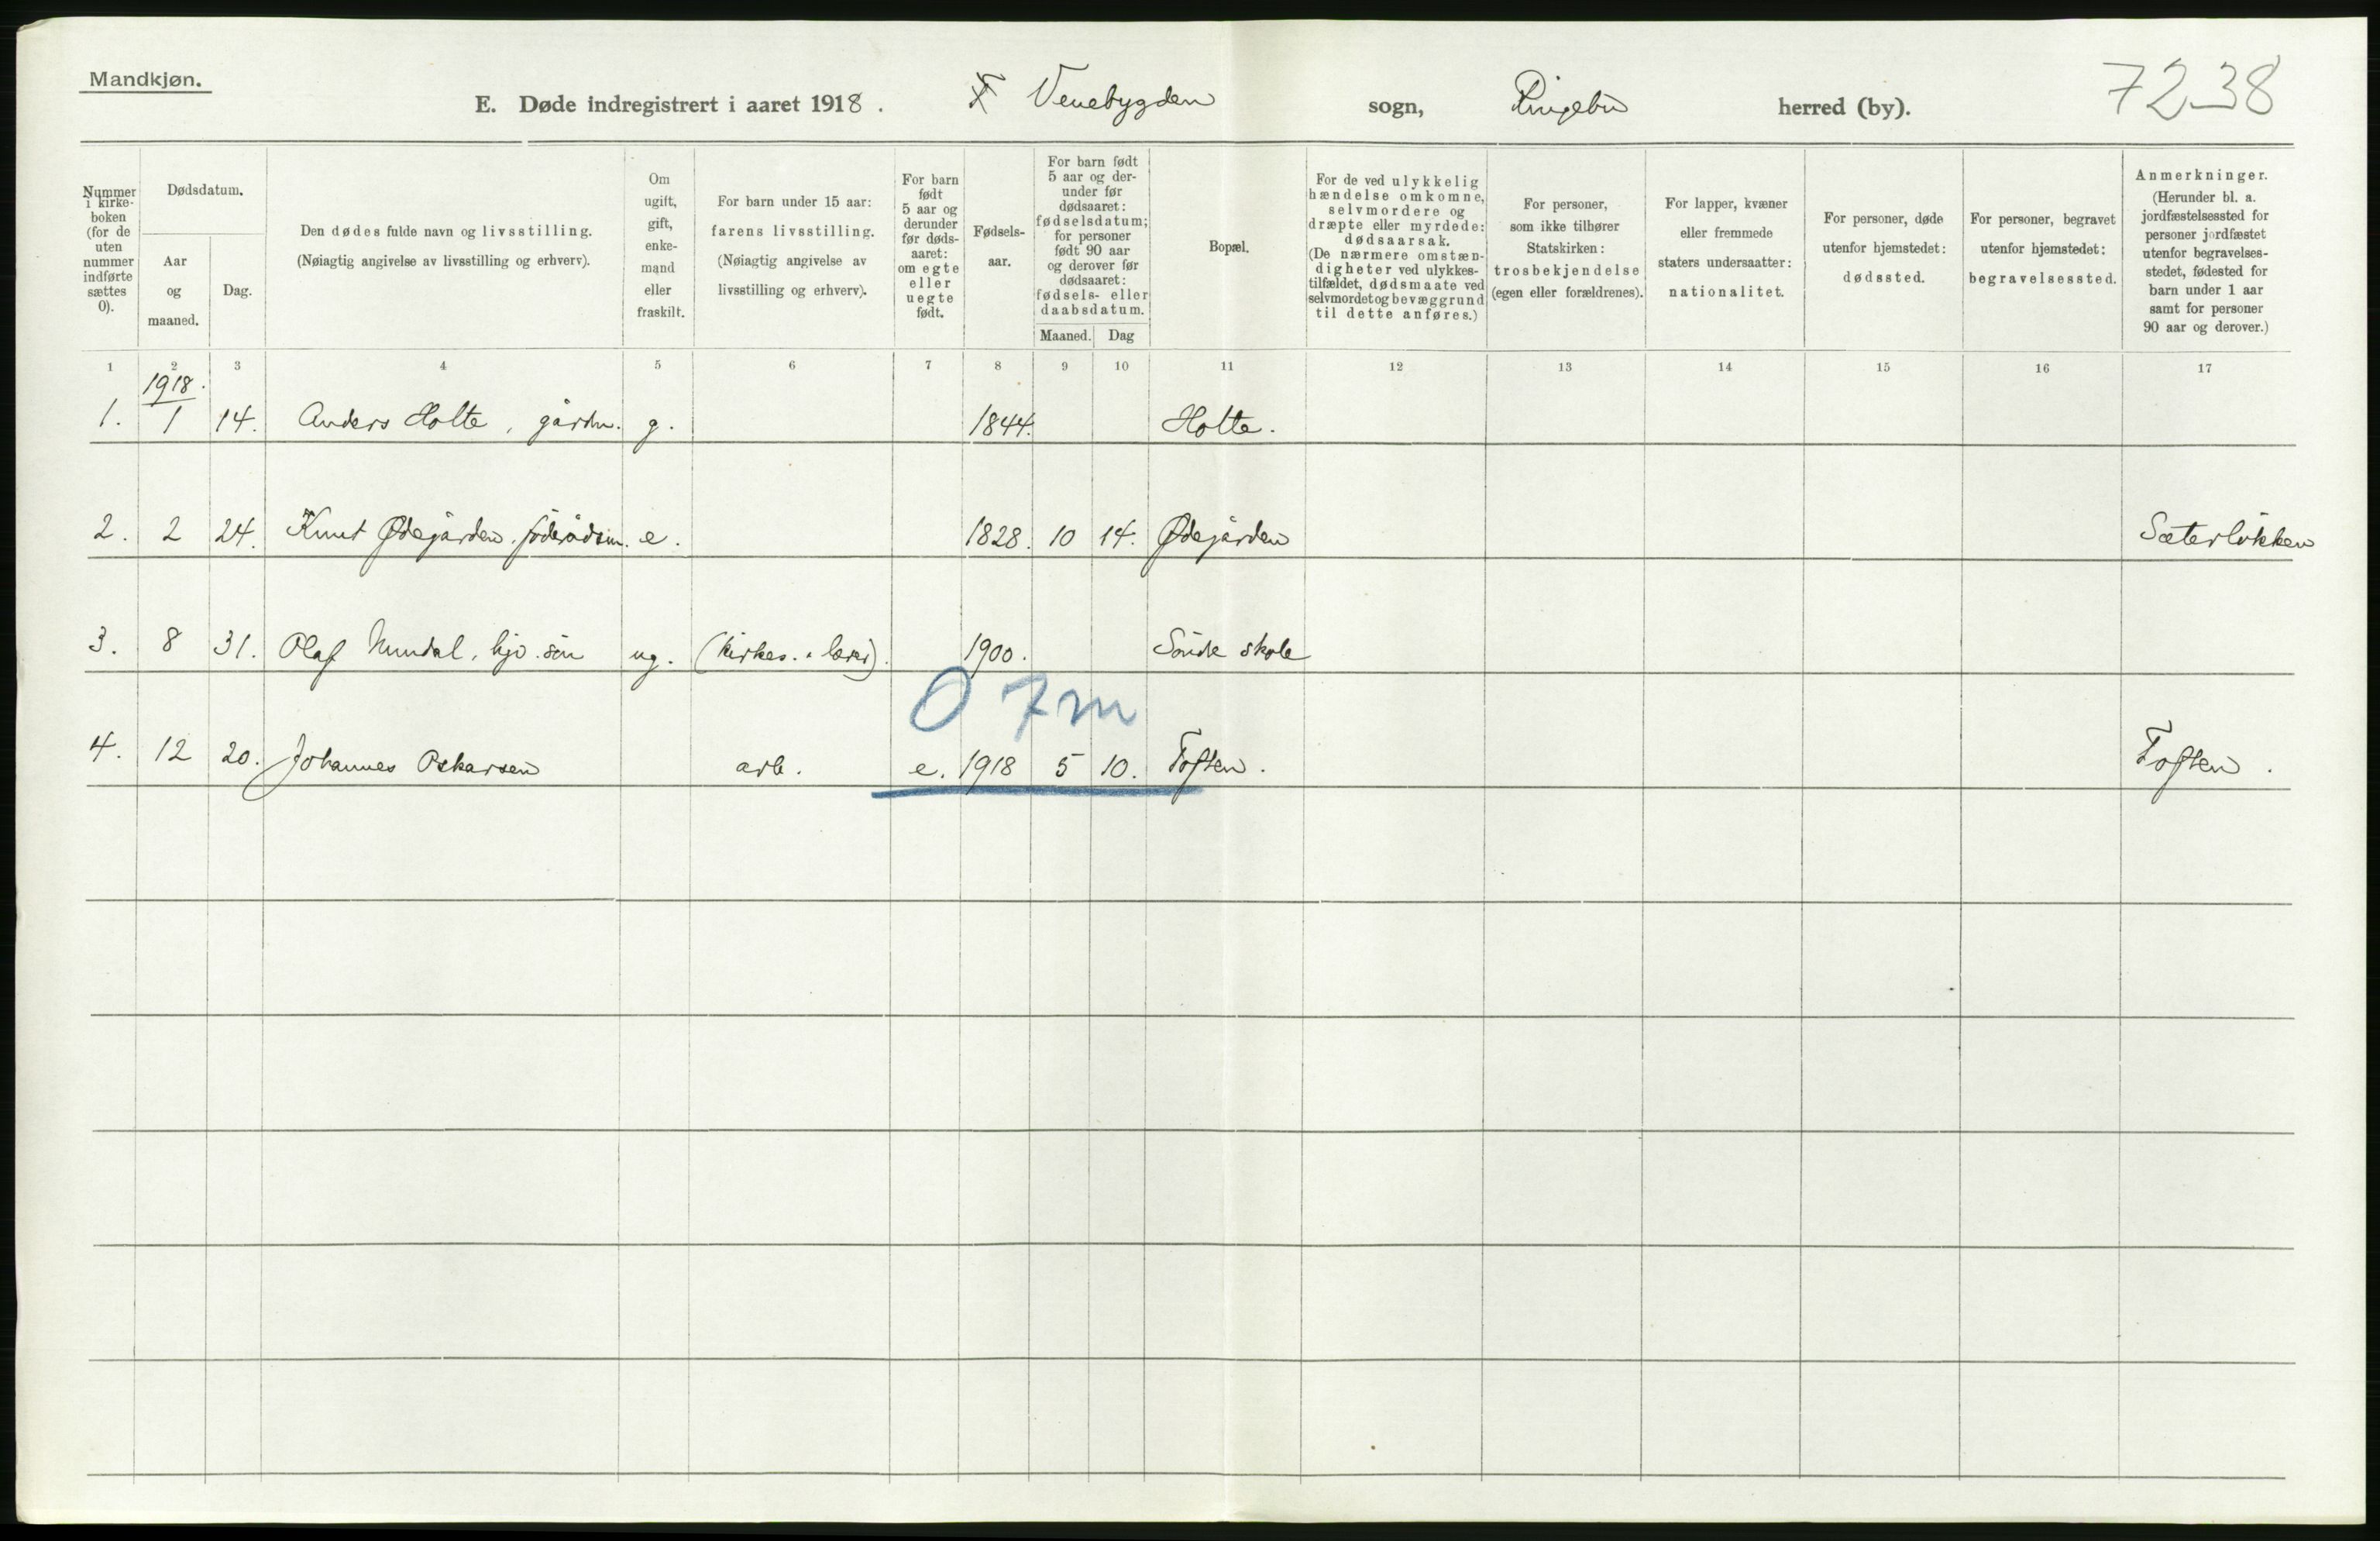 Mandkjøn.
E. Døde indregistrert i aaret 1918. Venebygden sogn, Ringebu herred (by). 7238
Nummer i kirke-boken (for de uten nummer indførte sættes 0).
Dødsdatum.
Aar og maaned.
Dag.
Den dødes fulde navn og livsstilling.
(Nøiagtig angivelse av livsstilling og erhverv).
Om ugift, gift, enke-mand eller fraskilt.
For barn under 15 aar: farens livsstilling. (Nøiagtig angivelse av livsstilling og erhverv).
For barn født 5 aar og derunder før døds-aaret: om egte eller uegte født.
Fødsels-aar.
For barn født 5 aar og der-under før dødsaaret: fødselsdatum; for personer født 90 aar og derover før dødsaaret: fødsels- eller daabsdatum.
Maaned. Dag
Bopæl.
For de ved ulykkelig hændelse omkomne, selvmordere og dræpte eller myrdede: dødsaarsak. (De nærmere omstæn-digheter ved ulykkes-tilfældet, dødsmaate ved selvmordet og bevæggrund til dette anføres.)
For personer, som ikke tilhører Statskirken: trosbekjendelse (egen eller forældrenes).
For lapper, kvæner eller fremmede staters undersaatter: nationalitet.
For personer, døde utenfor hjemstedet: dødssted.
For personer, begravet utenfor hjemstedet: begravelsessted.
Anmerkninger. (Herunder bl. a. jordfæstelsessted for personer jordfæstet utenfor begravelses-stedet, fødested for barn under 1 aar samt for personer 90 aar og derover.)
1 2 3 4 5 6 7 8 9 10 11 12 13 14 15 16 17
1918.
1. 1 14. Anders Holte, gårdm. g. 1844. Holte.
2. 2 24. Knut Ødegården, föderådsm. e. 1828. 10 14. Ødegården Sæterlökken
3. 8 31. Olaf Nundal, hjv. sön ug. (kirkes. & lærer). 1900. Söndre skole
0 7m
4. 12 20. Johannes Oskarsen arb. e. 1918 5 10. Toften. Toften.